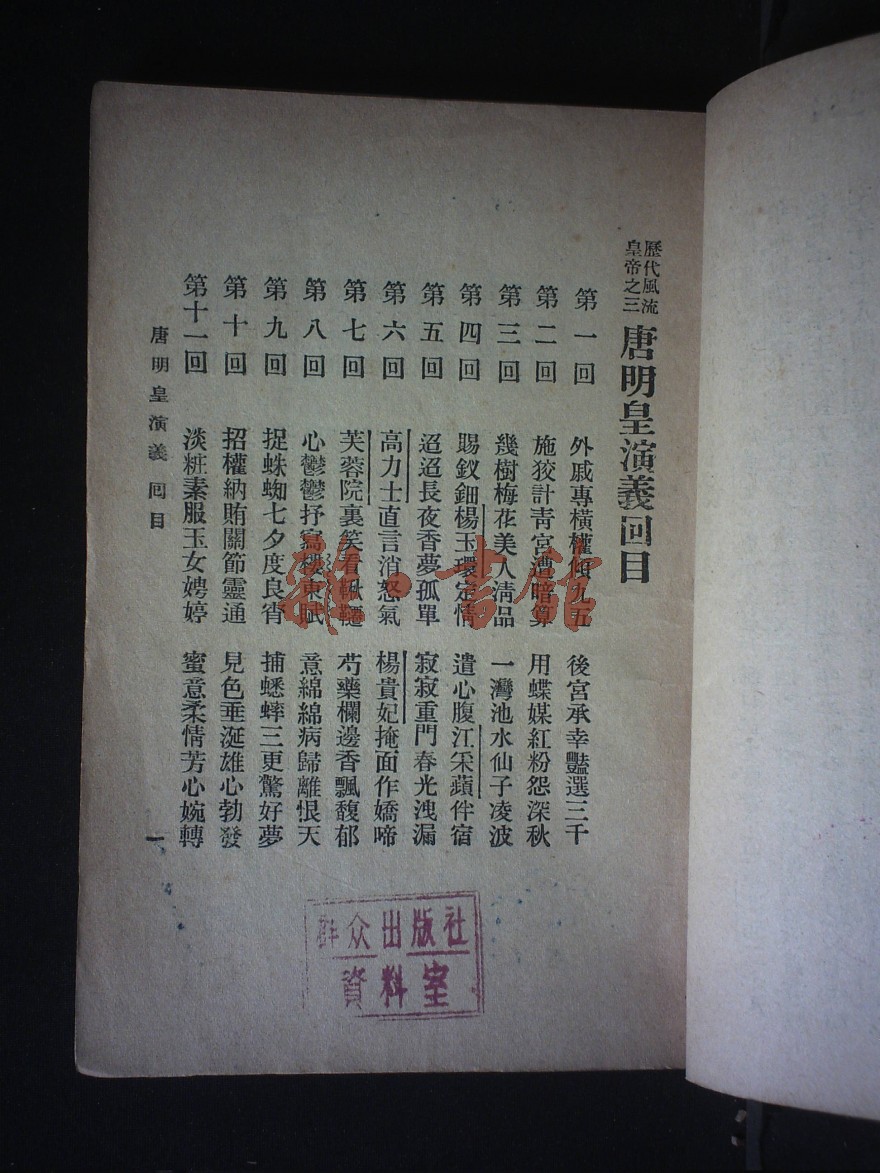 歷代風流
皇帝之三
唐明皇演義回目
第一回 外戚專橫權傾九五 後宮承幸豔選三千
第二回 施狡計靑宮遭暗算 用蝶媒紅粉怨深秋
第三回 幾樹梅花美人淸品 一灣池水仙子凌波
第四回 賜釵鈿楊玉環定情 遣心腹江采蘋伴宿
第五回 迢迢長夜香夢孤單 寂寂重門春光洩漏
第六回 高力士直言消怒氣 楊貴妃掩面作嬌啼
第七回 芙蓉院裏笑看鞦韆 芍藥欄邊香飄馥郁
第八回 心鬱鬱抒寫樓東賦 意綿綿病歸離恨天
第九回 捉蛛蜘七夕度良宵 捕蟋蟀三更驚好夢
第十回 招權納賄關節靈通 見色垂涎雄心勃發
第十一回 淡粧素服玉女娉婷 蜜意柔情芳心婉轉
唐明皇演義 回目
一
群众出版社
資料室
雜·書館